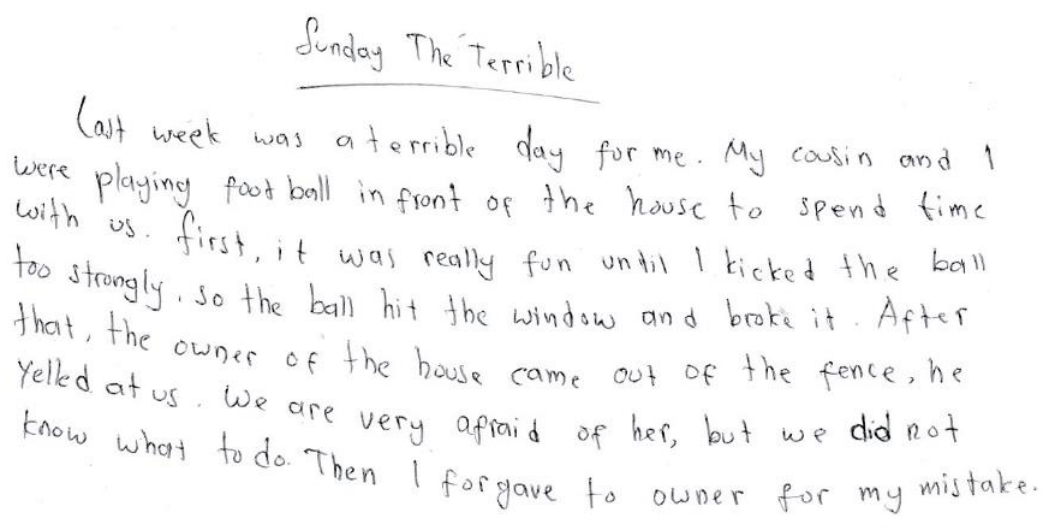 Sunday The Terrible
Last week was a terrible day for me. My cousin and I
were playing foot ball in front of the house to spend time
with us. first, it was really fun until I kicked the ball
too strongly. so the ball hit the window and broke it. After
that, the owner of the house came out of the fence, he
Yelled at us. We are very afraid of her, but we did not
know what to do. Then I forgave to owner for my mistake.